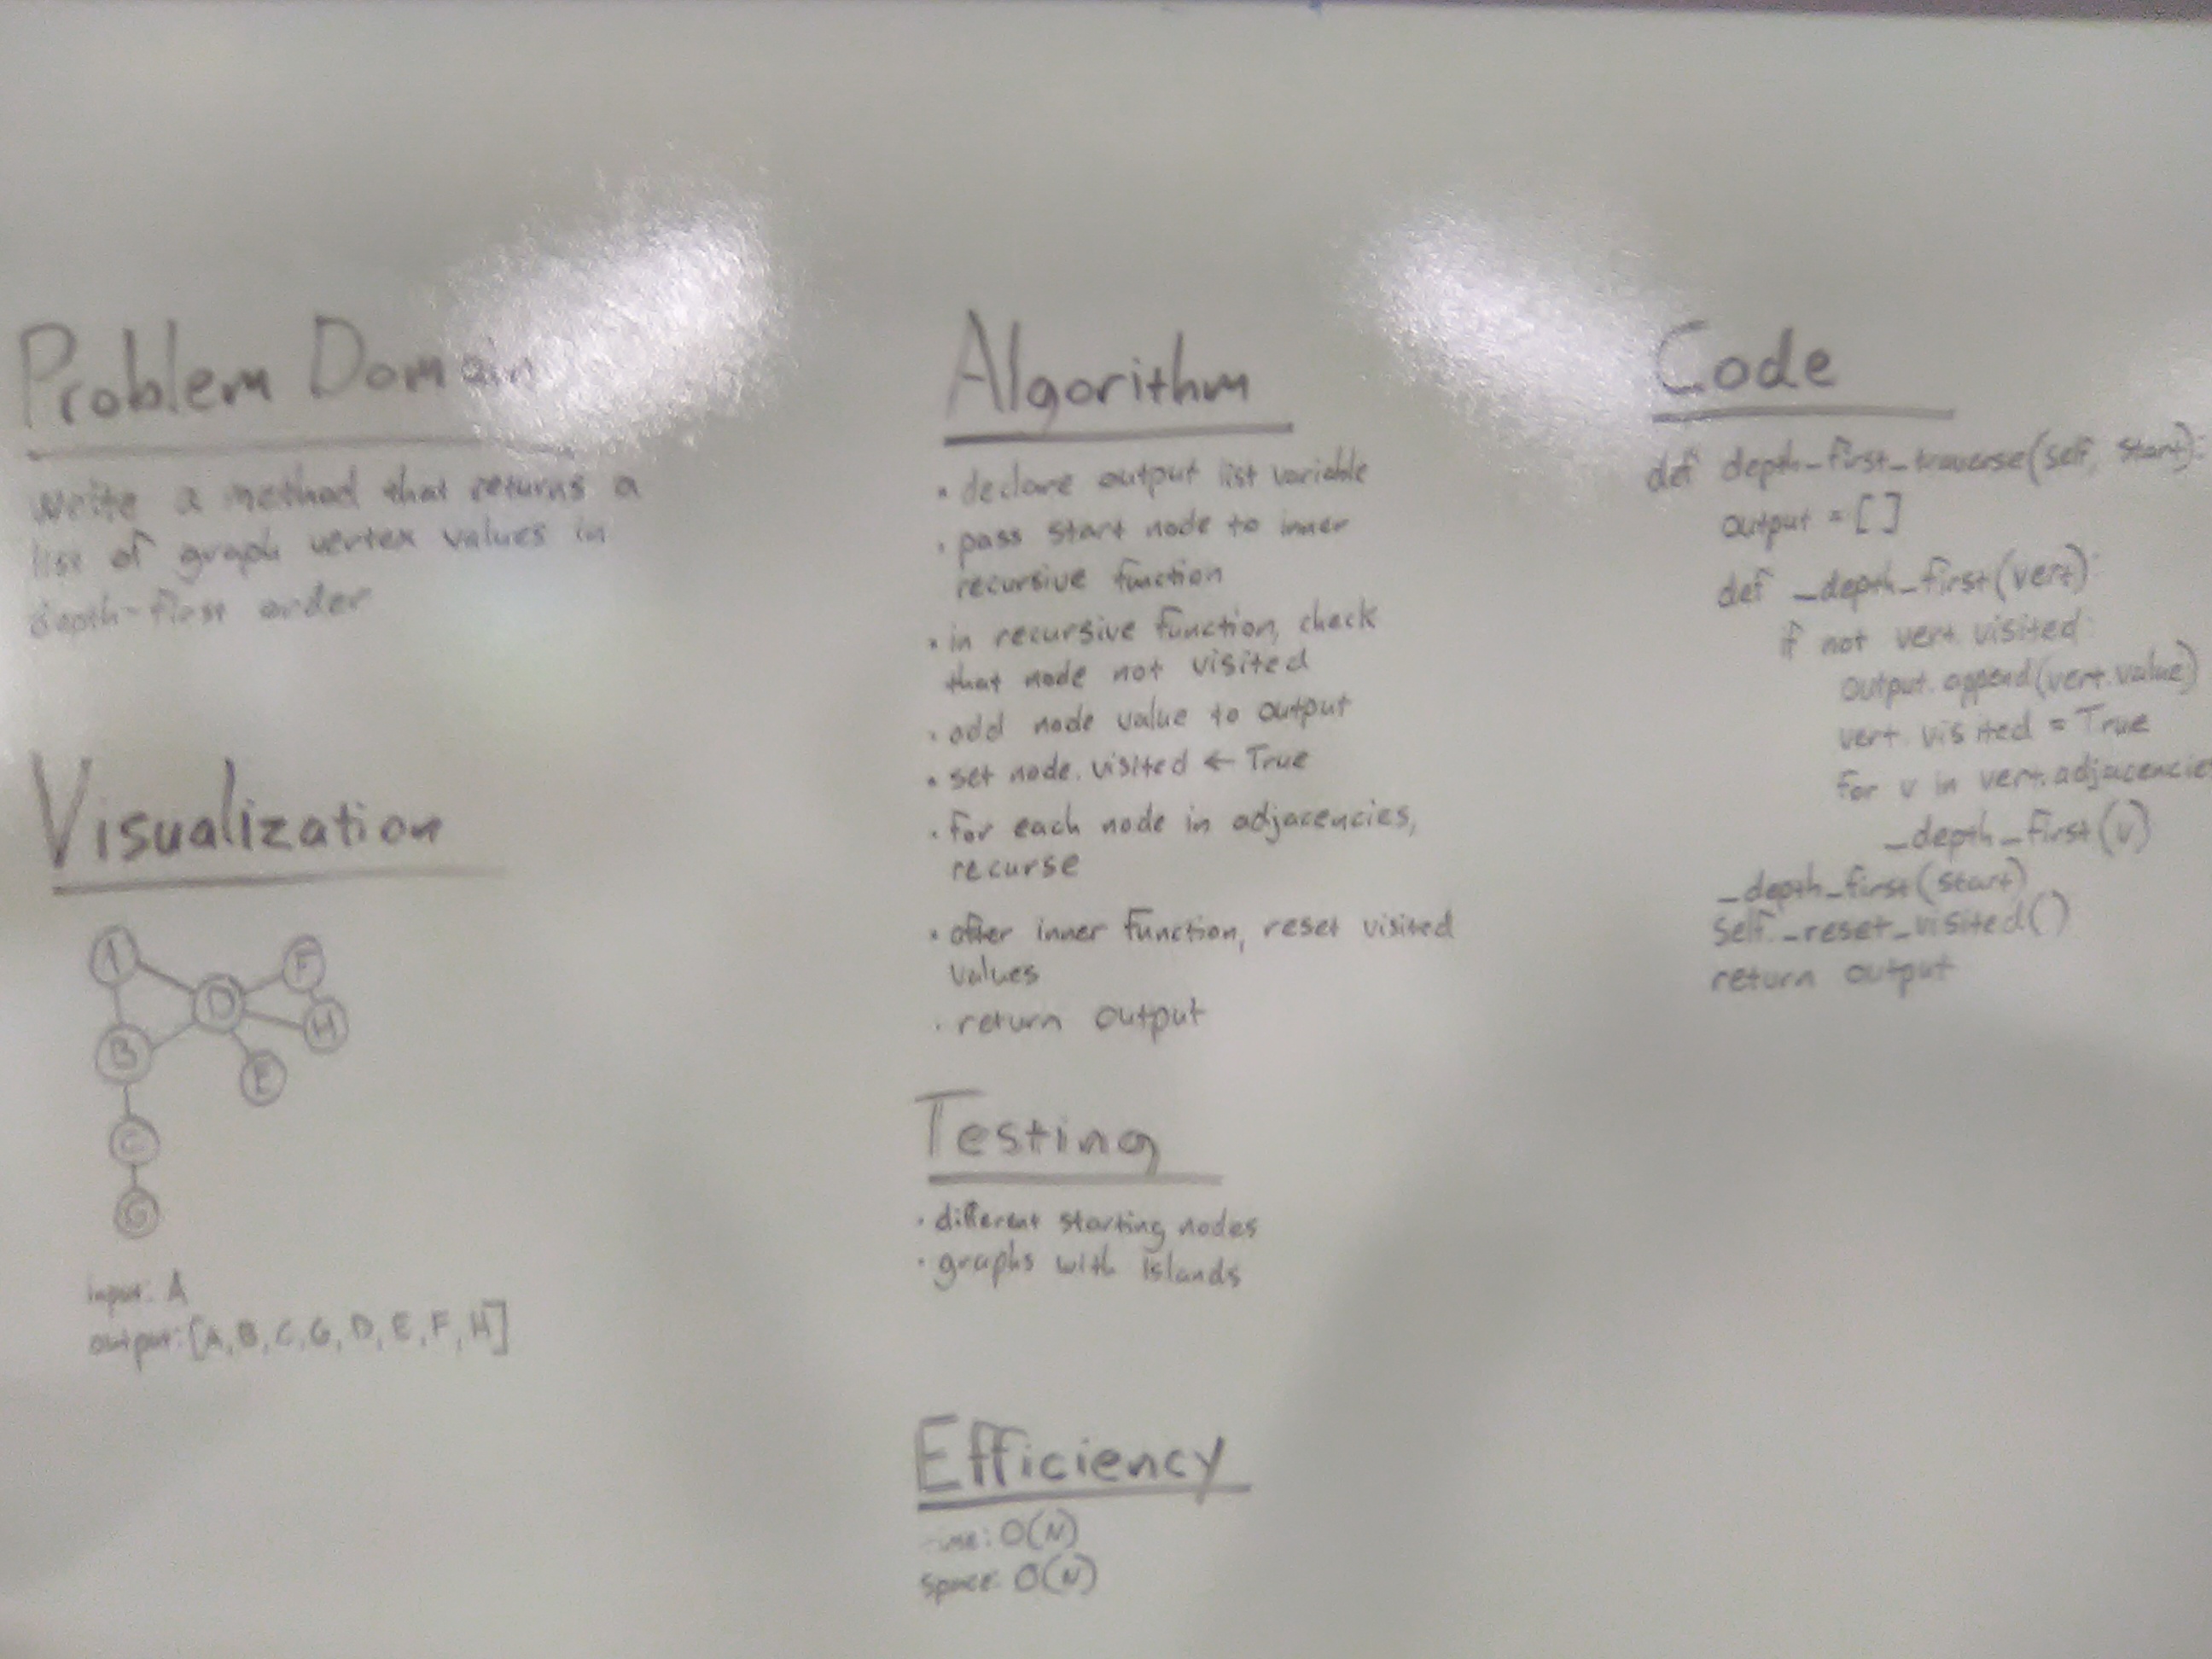 Problem Domain
Write a method that returns a
list of graph vertex values in
depth-first order
Visualization
A
F
D
H
B
E
C
G
input: A
output: [A, B, C, G, D, E, F, H]
Algorithm
• declare output list variable
• pass start node to inner
recursive function
• in recursive function, check
that node not visited
• add node value to output
• set node.visited ← True
• for each node in adjacencies,
recurse
• after inner function, reset visited
values
• return output
Testing
• different starting nodes
• graphs with islands
Efficiency
time: O(N)
space: O(N)
Code
def depth_first_traverse(self, start):
output = []
def _depth_first(vert):
if not vert.visited:
output.append(vert.value)
vert.visited = True
for v in vert.adjacencies
_depth_first(v)
_depth_first(start)
self._reset_visited()
return output